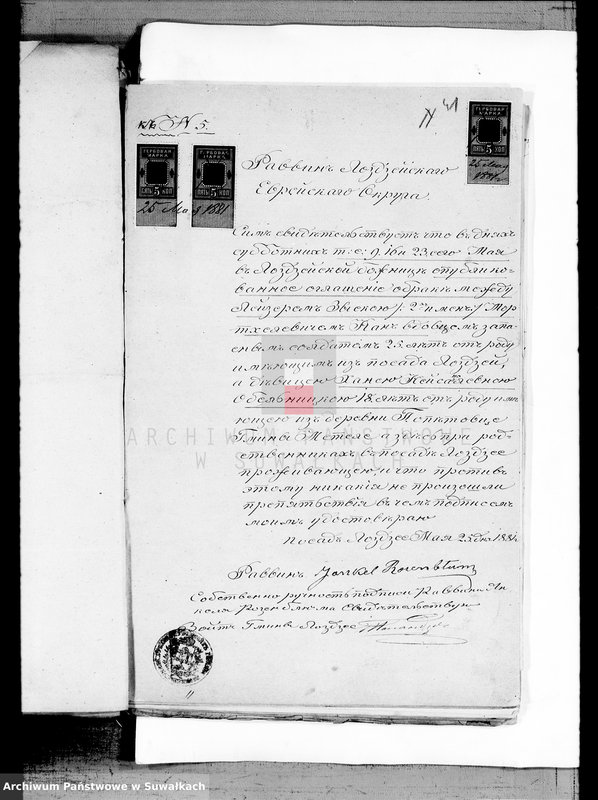 къ № 5.
41
ГЕРБОВАЯ МАРКА
ПЯТЬ 5 КОП
ГЕРБОВАЯ МАРКА
ПЯТЬ 5 КОП
25 Мая 1881
ГЕРБОВАЯ МАРКА
ПЯТЬ 5 КОП
25 Мая
1881
Раввинъ Лоздзейскаго
Еврейскаго Округа.
Симъ свидѣтельствуетъ что въ дняхъ
субботнихъ т: е: 9, 16 и 23 сего Мая
въ Лоздзейской божницѣ опублико-
ванное оглашеніе о бракѣ между
Лейзеромъ 2хъ именъ
Канъ въ общемъ запа-
сномъ солдатомъ 25 лѣтъ отъ роду
имѣющимъ изъ посада Лоздзей,
а дѣвицею Ханею
18 лѣтъ отъ роду имѣ-
ющею изъ деревни
Гмины Метеле а здѣсь при род-
ственникахъ въ посадѣ Лоздзее
проживающею, и что противъ
этому никакія не произошли
препятствія въ чемъ подписомъ
моимъ удостовѣряю
посадъ Лоздзее Мая 25 дня 1881.
Раввинъ Jankel Rosenblum
Собственноручность подписи Раввина Ян
келя Розенблюма свидѣтельствую
Войтъ Гмины Лоздзее
ARCHIWUM PAŃSTWOWE
W SUWAŁKACH
Archiwum Państwowe w Suwałkach